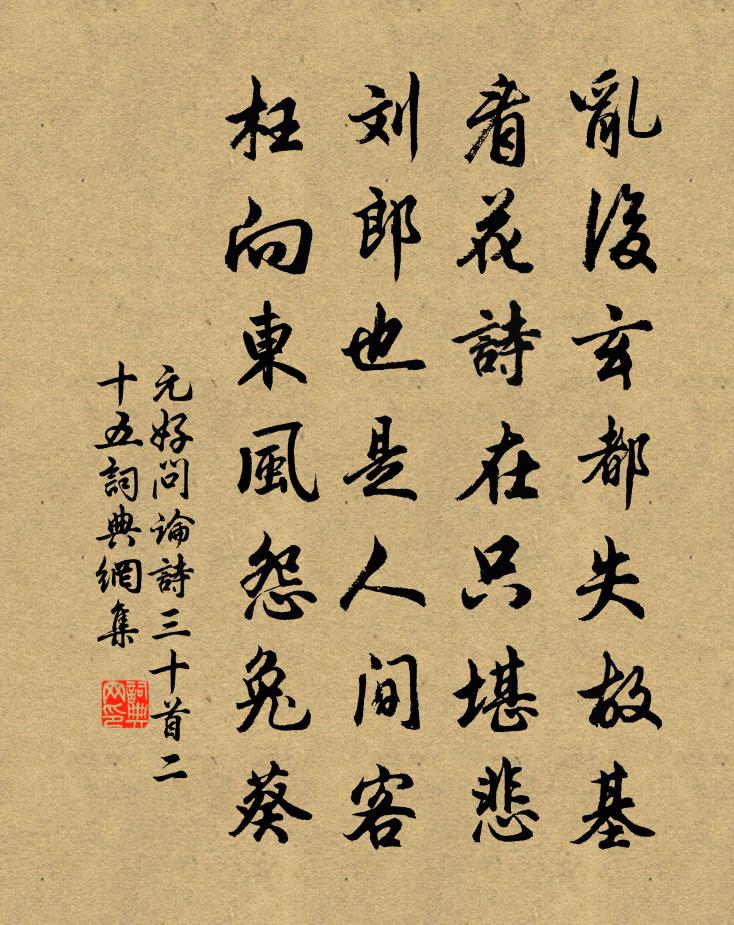 亂後玄都失故基
看花詩在只堪悲
刘郎也是人间客
枉向東風怨兔葵
元好问論詩三十首二
十五詞典網集
詞典网印